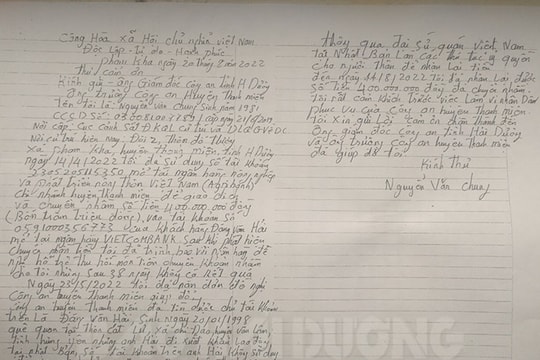 Cộng Hòa Xã Hội chủ nghĩa việt Nam
Độc lập - tự do - Hạnh phúc
phạm Kha ngày 20 tháng 8 năm 2022
thư cảm ơn
Kính gửi - ông Giám đốc công an tỉnh H Dương
ông trưởng công an Huyện Thanh miện
Tên tôi là: Nguyễn văn chung Sinh năm 1981
Nơi cấp. Cục Cảnh sát ĐKQL cư trú và DLQGVDC.
Nơi cư trú hiện nay. Đội 2, Thôn đỗ thượng
Xã Phạm Kha, huyện Thanh miện, Tỉnh H Dương
ngày 14/4/2022 tôi đã sử dụng số tài khoản
2305205115350 mở tại ngân hàng nông nghiệp
và phát triển nông thôn Việt Nam (Agribank)
chi nhánh huyện Thanh miện. để giao dịch
và chuyển nhầm số tiền 400.000.000 đồng
(Bốn trăm triệu đồng), vào tài khoản số
0591000356773 của khách hàng Đặng văn Hải
mở tại ngân hàng VIETCOMBANK. Sau khi phát hiện
chuyển nhầm tôi đã trình báo với ngân hàng để
cho tôi nhưng sau 38 ngày không có kết quả
Ngày 23/5/2022 tôi đã làm đơn đề nghị
Công an huyện Thanh miện giúp đỡ.
Công an huyện Thanh miện đã tìm được chủ tài khoản
trên là Đặng văn Hải, Sinh ngày 21/01/1998
quê quán tại Thôn Cát Lư, xã chỉ Đạo, huyện văn Lâm,
tỉnh Hưng yên nhưng anh Hải đi xuất khẩu Lao động
tại nhật Bản, Số tài khoản trên anh Hải không sử dụng
thông qua đại sứ quán việt Nam
tại Nhật Bản làm các thủ tục ủy quyền
cho người thân để nhận lại tiền
đến ngày 11/8/2022 tôi đã nhận lại được
số tiền 400.000.000 đồng đã chuyển nhầm.
Tôi rất cảm kích trước việc làm vì nhân Dân
phục vụ của công an huyện Thanh miện
Tôi xin gửi lời cảm ơn chân thành đến
ông giám đốc công an tỉnh Hải Dương
và ông trưởng công an huyện thanh miện
đã giúp đỡ tôi.
Kính thư
Nguyễn Văn Chung
DƯƠNG